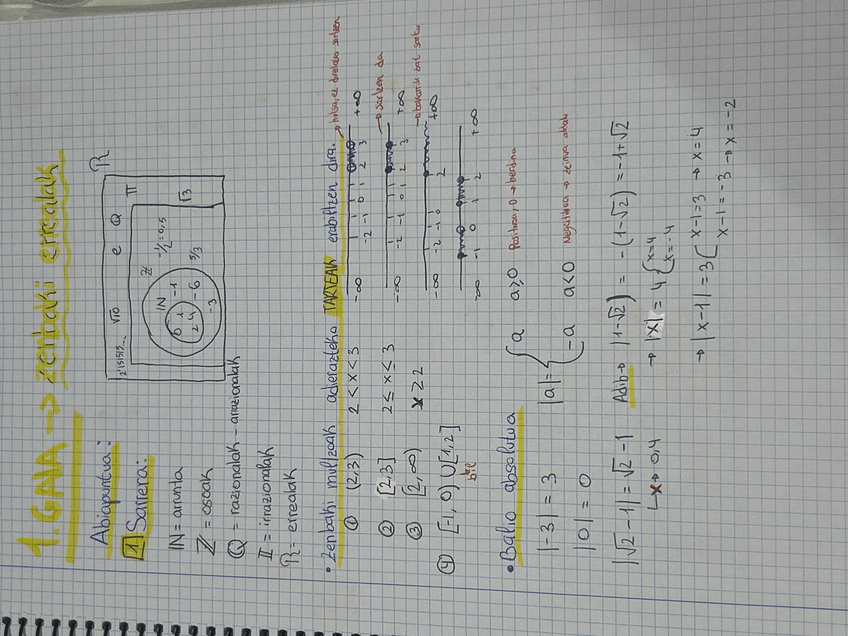 1. GAIA → zenbaki errealak
Abiapuntua:
1 Sarrera:
IN = arrunta
Z = osoak
Q = razionalak - arrazionalak
II = irrazionalak
R = errealak
R
2'151512... √10 e Q II
√3
Z -1/2=0,5 5/3
IN -1 -6 -3
0 1 2 4
• Zenbaki multzoak adierazteko TARTEAK erabiltzen dira.
① (2,3) 2 < x < 3 -∞ -2 -1 0 1 2 3 +∞
② [2,3] 2 ≤ x ≤ 3 -∞ -2 -1 0 1 2 3 +∞ → sartzen da
③ [2,∞) x ≥ 2 -∞ -2 -1 0 2 +∞
④ [-1, 0) U [1,2] -∞ -1 0 1 2 +∞
bil
• Balio absolutua
|a| = { a a ≥ 0 Positiboa, 0 → berdina
-a a < 0 Negatiboa → zeinua aldatu
|-3| = 3
|0| = 0
|√2 - 1| = √2 - 1
↳ x → 0,4
Adib → |1-√2| = -(1-√2) = -1+√2
→ |x| = 4 { x=4
x=-4
→ |x-1| = 3 { x-1=3 → x=4
x-1=-3 → x=-2